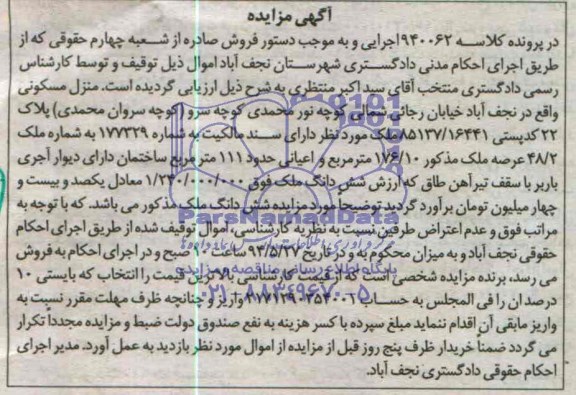 آگهی مزایده
در پرونده کلاسه ۹۴۰۰۶۲ اجرایی و به موجب دستور فروش صادره از شعبه چهارم حقوقی که از
طریق اجرای احکام مدنی دادگستری شهرستان نجف آباد اموال ذیل توقیف و توسط کارشناس
رسمی دادگستری منتخب آقای سید اکبر منتظری به شرح ذیل ارزیابی گردیده است. منزل مسکونی
واقع در نجف آباد خیابان رجائی شمالی کوچه نور محمدی کوچه سرو (کوچه سروان محمدی) پلاک
۲۲ کدپستی ۸۵۱۳۷/۱۶۴۴۱ ملک مورد نظر دارای سند مالکیت به شماره ۱۷۷۳۲۹ به شماره ملک
۴۸/۲ عرصه ملک مذکور ۱۷۶/۱۰ مترمربع و اعیانی حدود ۱۱۱ متر مربع ساختمان دارای دیوار آجری
باربر با سقف تیرآهن طاق که ارزش شش دانگ ملک فوق ۱/۲۴۰/۰۰۰/۰۰۰ معادل یکصد و بیست و
چهار میلیون تومان برآورد گردید توضیحا مورد مزایده شش دانگ ملک مذکور می باشد. که با توجه به
مراتب فوق و عدم اعتراض طرفین نسبت به نظریه کارشناسی، اموال توقیف شده از طریق اجرای احکام
حقوقی نجف آباد و به میزان محکوم به و در تاریخ ۹۴/۵/۲۷ ساعت ۱۰ صبح و در اجرای احکام به فروش
می رسد، برنده مزایده شخصی است که از قیمت کارشناسی بالاترین قیمت را انتخاب که بایستی ۱۰
درصد ان را فی المجلس به حساب واریز و چنانچه ظرف مهلت مقرر نسبت به
واریز مابقی آن اقدام ننماید مبلغ سپرده با کسر هزینه به نفع صندوق دولت ضبط و مزایده مجدداً تکرار
می گردد ضمناً خریدار ظرف پنج روز قبل از مزایده از اموال مورد نظر بازدید به عمل آورد. مدیر اجرای
احکام حقوقی دادگستری نجف آباد.
ParsNamadData
پایگاه اطلاع رسانی مناقصه و مزایده
۰۲۱-۸۸۳۴۹۶۷۰-۵